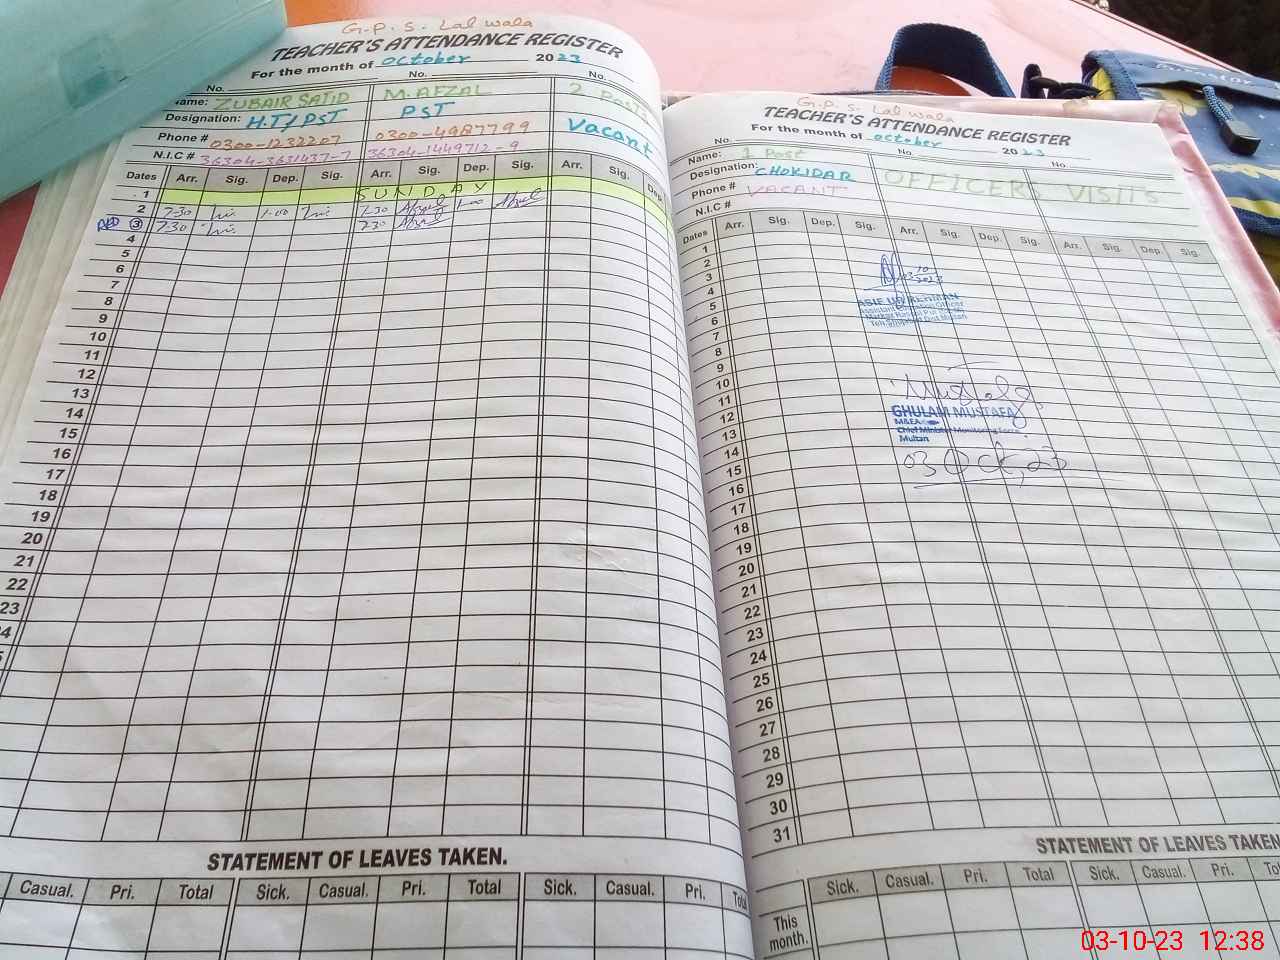 G.P.S. Lal wala
TEACHER'S ATTENDANCE REGISTER
For the month of October 2023
No. No. No.
Name: ZUBAIR SAJID M. AFZAL 2 Posts
Designation: H.T/PST PST Vacant
Phone # 0300-1232207 0300-4987799
N.I.C # 36304-3631437-7 36304-1449712-9
Dates Arr. Sig. Dep. Sig. Arr. Sig. Dep. Sig. Arr. Sig. Dep.
1 SUNDAY
2 7-30 1-00 7-30 1-00
3 7-30 7-30
4
5
6
7
8
9
10
11
12
13
14
15
16
17
18
19
20
21
22
23
STATEMENT OF LEAVES TAKEN.
Casual. Pri. Total Sick. Casual. Pri. Total Sick. Casual. Pri. Total
G.P.S. Lal wala
TEACHER'S ATTENDANCE REGISTER
For the month of October 2023
No. No. No.
Name: 1 Post OFFICERS VISITS
Designation: CHOKIDAR
Phone # VACANT
N.I.C #
Dates Arr. Sig. Dep. Sig. Arr. Sig. Dep. Sig. Arr. Sig. Dep. Sig.
1
2
3
4
5
6
7
8
9
10
11
12
13
14
15
16
17
18
19
20
21
22
23
24
25
26
27
28
29
30
31
ASIF UR REHMAN
Assistant Education Officer
GHULAM MUSTAFA
M&EA
Chief Minister Monitoring Force
Multan
03 Oct, 23
STATEMENT OF LEAVES TAKEN.
Sick. Casual. Pri. Total Sick. Casual. Pri. Total
This month.
03-10-23 12:38